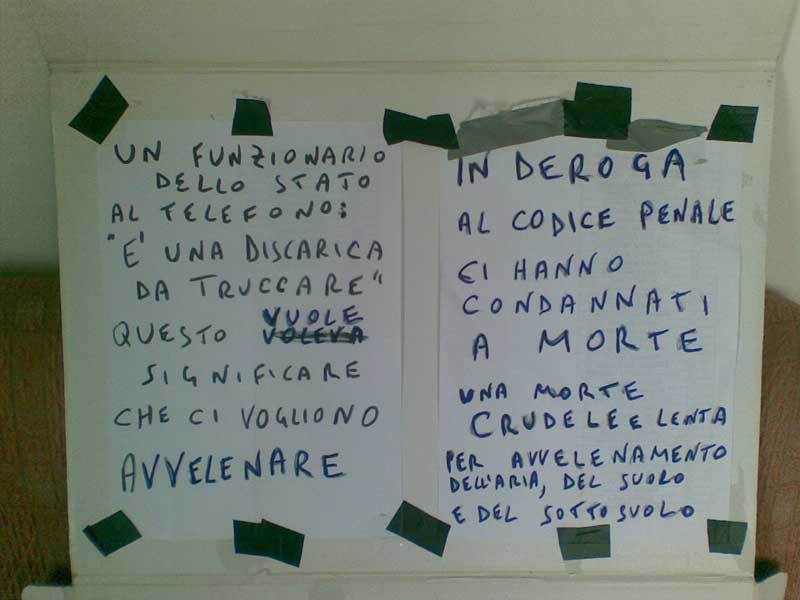 UN FUNZIONARIO
DELLO STATO
AL TELEFONO:
"E' UNA DISCARICA
DA TRUCCARE"
VUOLE
QUESTO VOLEVA
SIGNIFICARE
CHE CI VOGLIONO
AVVELENARE
IN DEROGA
AL CODICE PENALE
CI HANNO
CONDANNATI
A MORTE
UNA MORTE
CRUDELE E LENTA
PER AVVELENAMENTO
DELL'ARIA, DEL SUOLO
E DEL SOTTOSUOLO